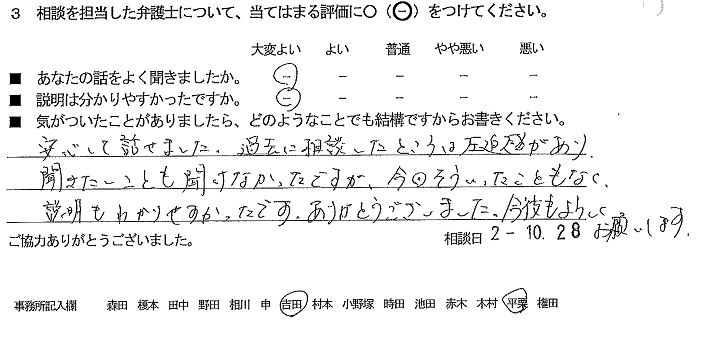 3 相談を担当した弁護士について、当てはまる評価に○(㊀)をつけてください。
大変よい よい 普通 やや悪い 悪い
■ あなたの話をよく聞きましたか。 － － － － －
■ 説明は分かりやすかったですか。 － － － － －
■ 気がついたことがありましたら、どのようなことでも結構ですからお書きください。
安心して話せました。過去に相談したところは圧迫感があり、
聞きたいことも聞けなかったですが、今回そういったこともなく、
説明もわかりやすかったです。ありがとうございました。今後もよろしく
お願いします。
ご協力ありがとうございました。 相談日 2-10.28
事務所記入欄 森田 榎本 田中 野田 相川 申 吉田 村本 小野塚 時田 池田 赤木 木村 平栗 権田